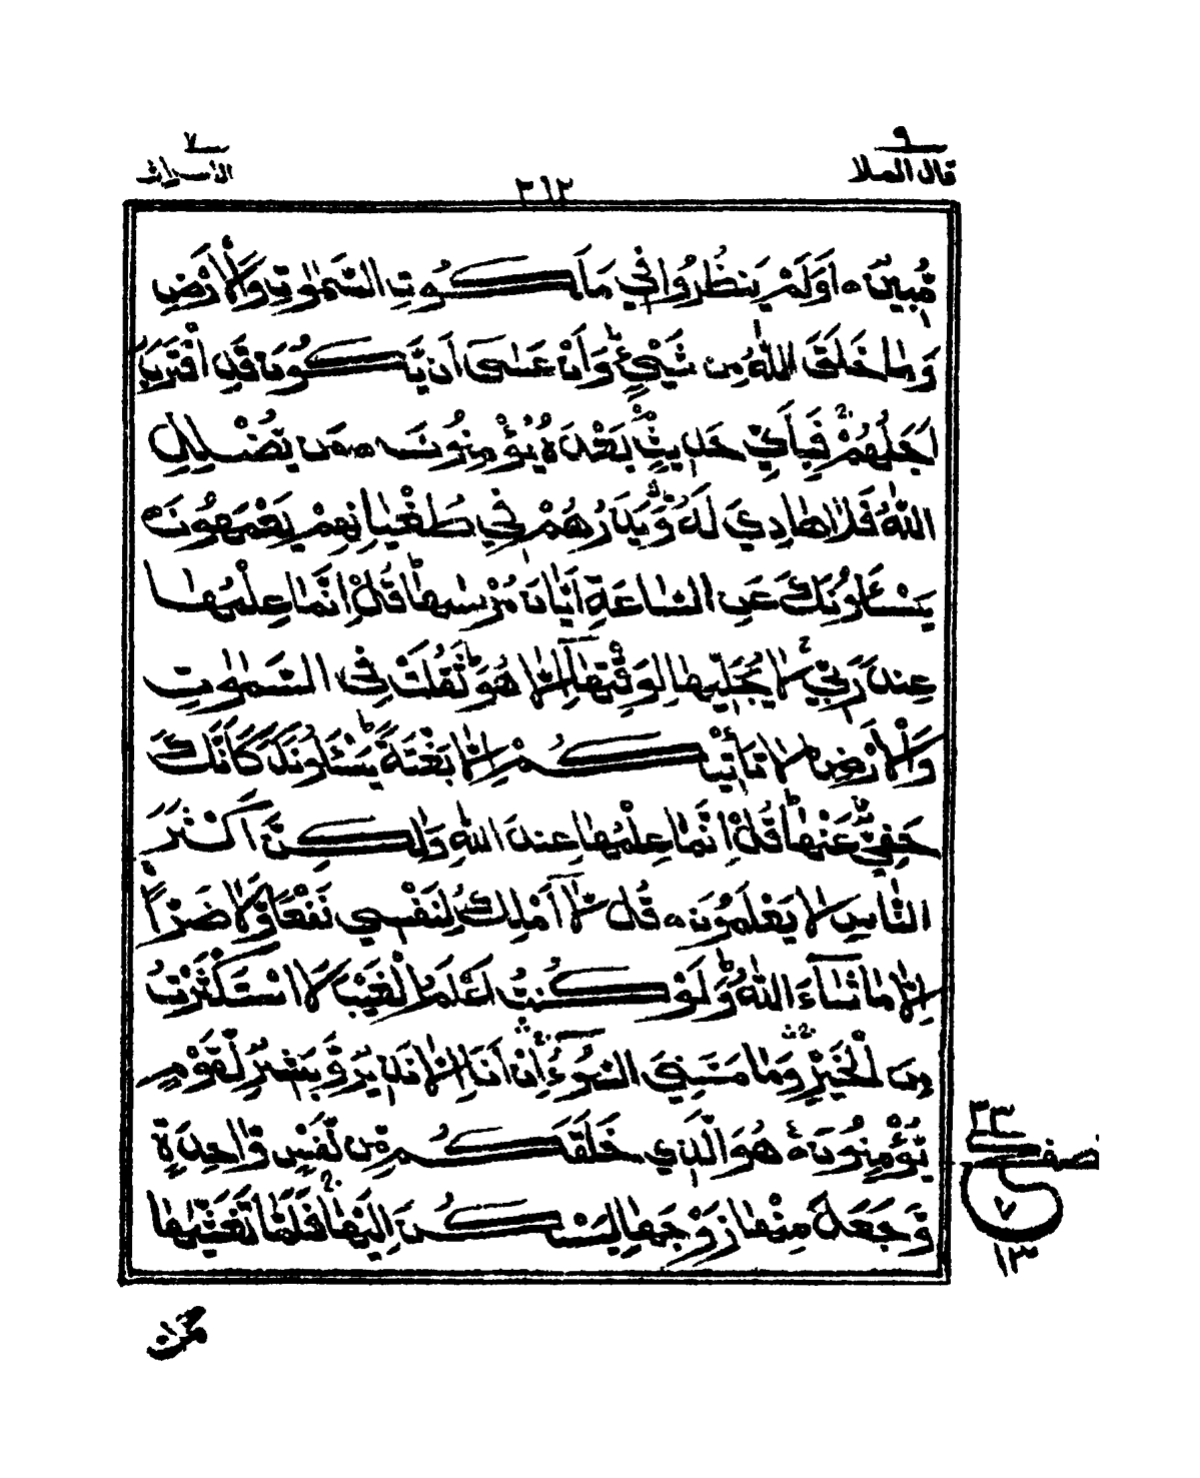 ٩
قال الملا
٣١٢
٧
الاعراف
مُّبِيْنٌ ه اَوَلَمْ يَنظُرُوا فِي مَلَكُوتِ السَّمٰوٰتِ وَالْاَرْضِ
وَمَا خَلَقَ اللّٰهُ مِن شَيْءٍ ۙ وَّاَنْ عَسٰى اَن يَّكُوْنَ قَدِ اقْتَرَبَ
اَجَلُهُمْ ۚ فَبِاَيِّ حَدِيْثٍۭ بَعْدَهٗ يُؤْمِنُوْنَ ه مَن يُّضْلِلِ
اللّٰهُ فَلَا هَادِيَ لَهٗ ؕ وَيَذَرُهُمْ فِي طُغْيَانِهِمْ يَعْمَهُوْنَ ه
يَسْـَٔلُوْنَكَ عَنِ السَّاعَةِ اَيَّانَ مُرْسٰىهَا ؕ قُلْ اِنَّمَا عِلْمُهَا
عِندَ رَبِّيْ ۚ لَا يُجَلِّيْهَا لِوَقْتِهَا اِلَّا هُوَ ؕ ثَقُلَتْ فِي السَّمٰوٰتِ
وَالْاَرْضِ ؕ لَا تَاْتِيْكُمْ اِلَّا بَغْتَةً ؕ يَسْـَٔلُوْنَكَ كَاَنَّكَ
حَفِيٌّ عَنْهَا ؕ قُلْ اِنَّمَا عِلْمُهَا عِندَ اللّٰهِ وَلٰكِنَّ اَكْثَرَ
النَّاسِ لَا يَعْلَمُوْنَ ه قُل لَّآ اَمْلِكُ لِنَفْسِي نَفْعًا وَّلَا ضَرًّا
اِلَّا مَا شَآءَ اللّٰهُ ؕ وَلَوْ كُنتُ اَعْلَمُ الْغَيْبَ لَاسْتَكْثَرْتُ
مِنَ الْخَيْرِ ۛۚ وَمَا مَسَّنِيَ السُّوْٓءُ ۛۚ اِنْ اَنَا اِلَّا نَذِيْرٌ وَّبَشِيْرٌ لِّقَوْمٍ
يُّؤْمِنُوْنَ ه هُوَ الَّذِي خَلَقَكُم مِّن نَّفْسٍ وَّاحِدَةٍ
وَّجَعَلَ مِنْهَا زَوْجَهَا لِيَسْكُنَ اِلَيْهَا ۚ فَلَمَّا تَغَشّٰىهَا
نصف
٧
١٣